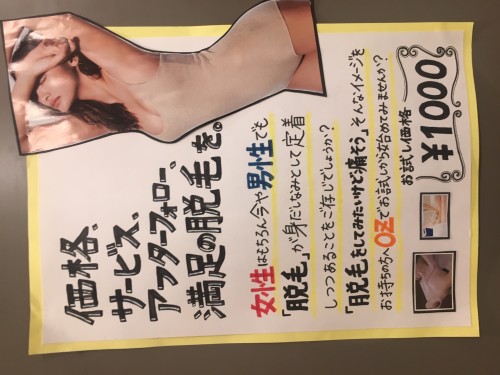 価格、
サービス、
アフターフォロー、
満足の脱毛を。
女性はもちろん今や男性でも
「脱毛」が身だしなみとして定着
しつつあることをご存じでしょうか?
「脱毛をしてみたいけど痛そう」そんなイメージを
お持ちの方へOZでお試しから始めてみませんか?
お試し価格
¥1000